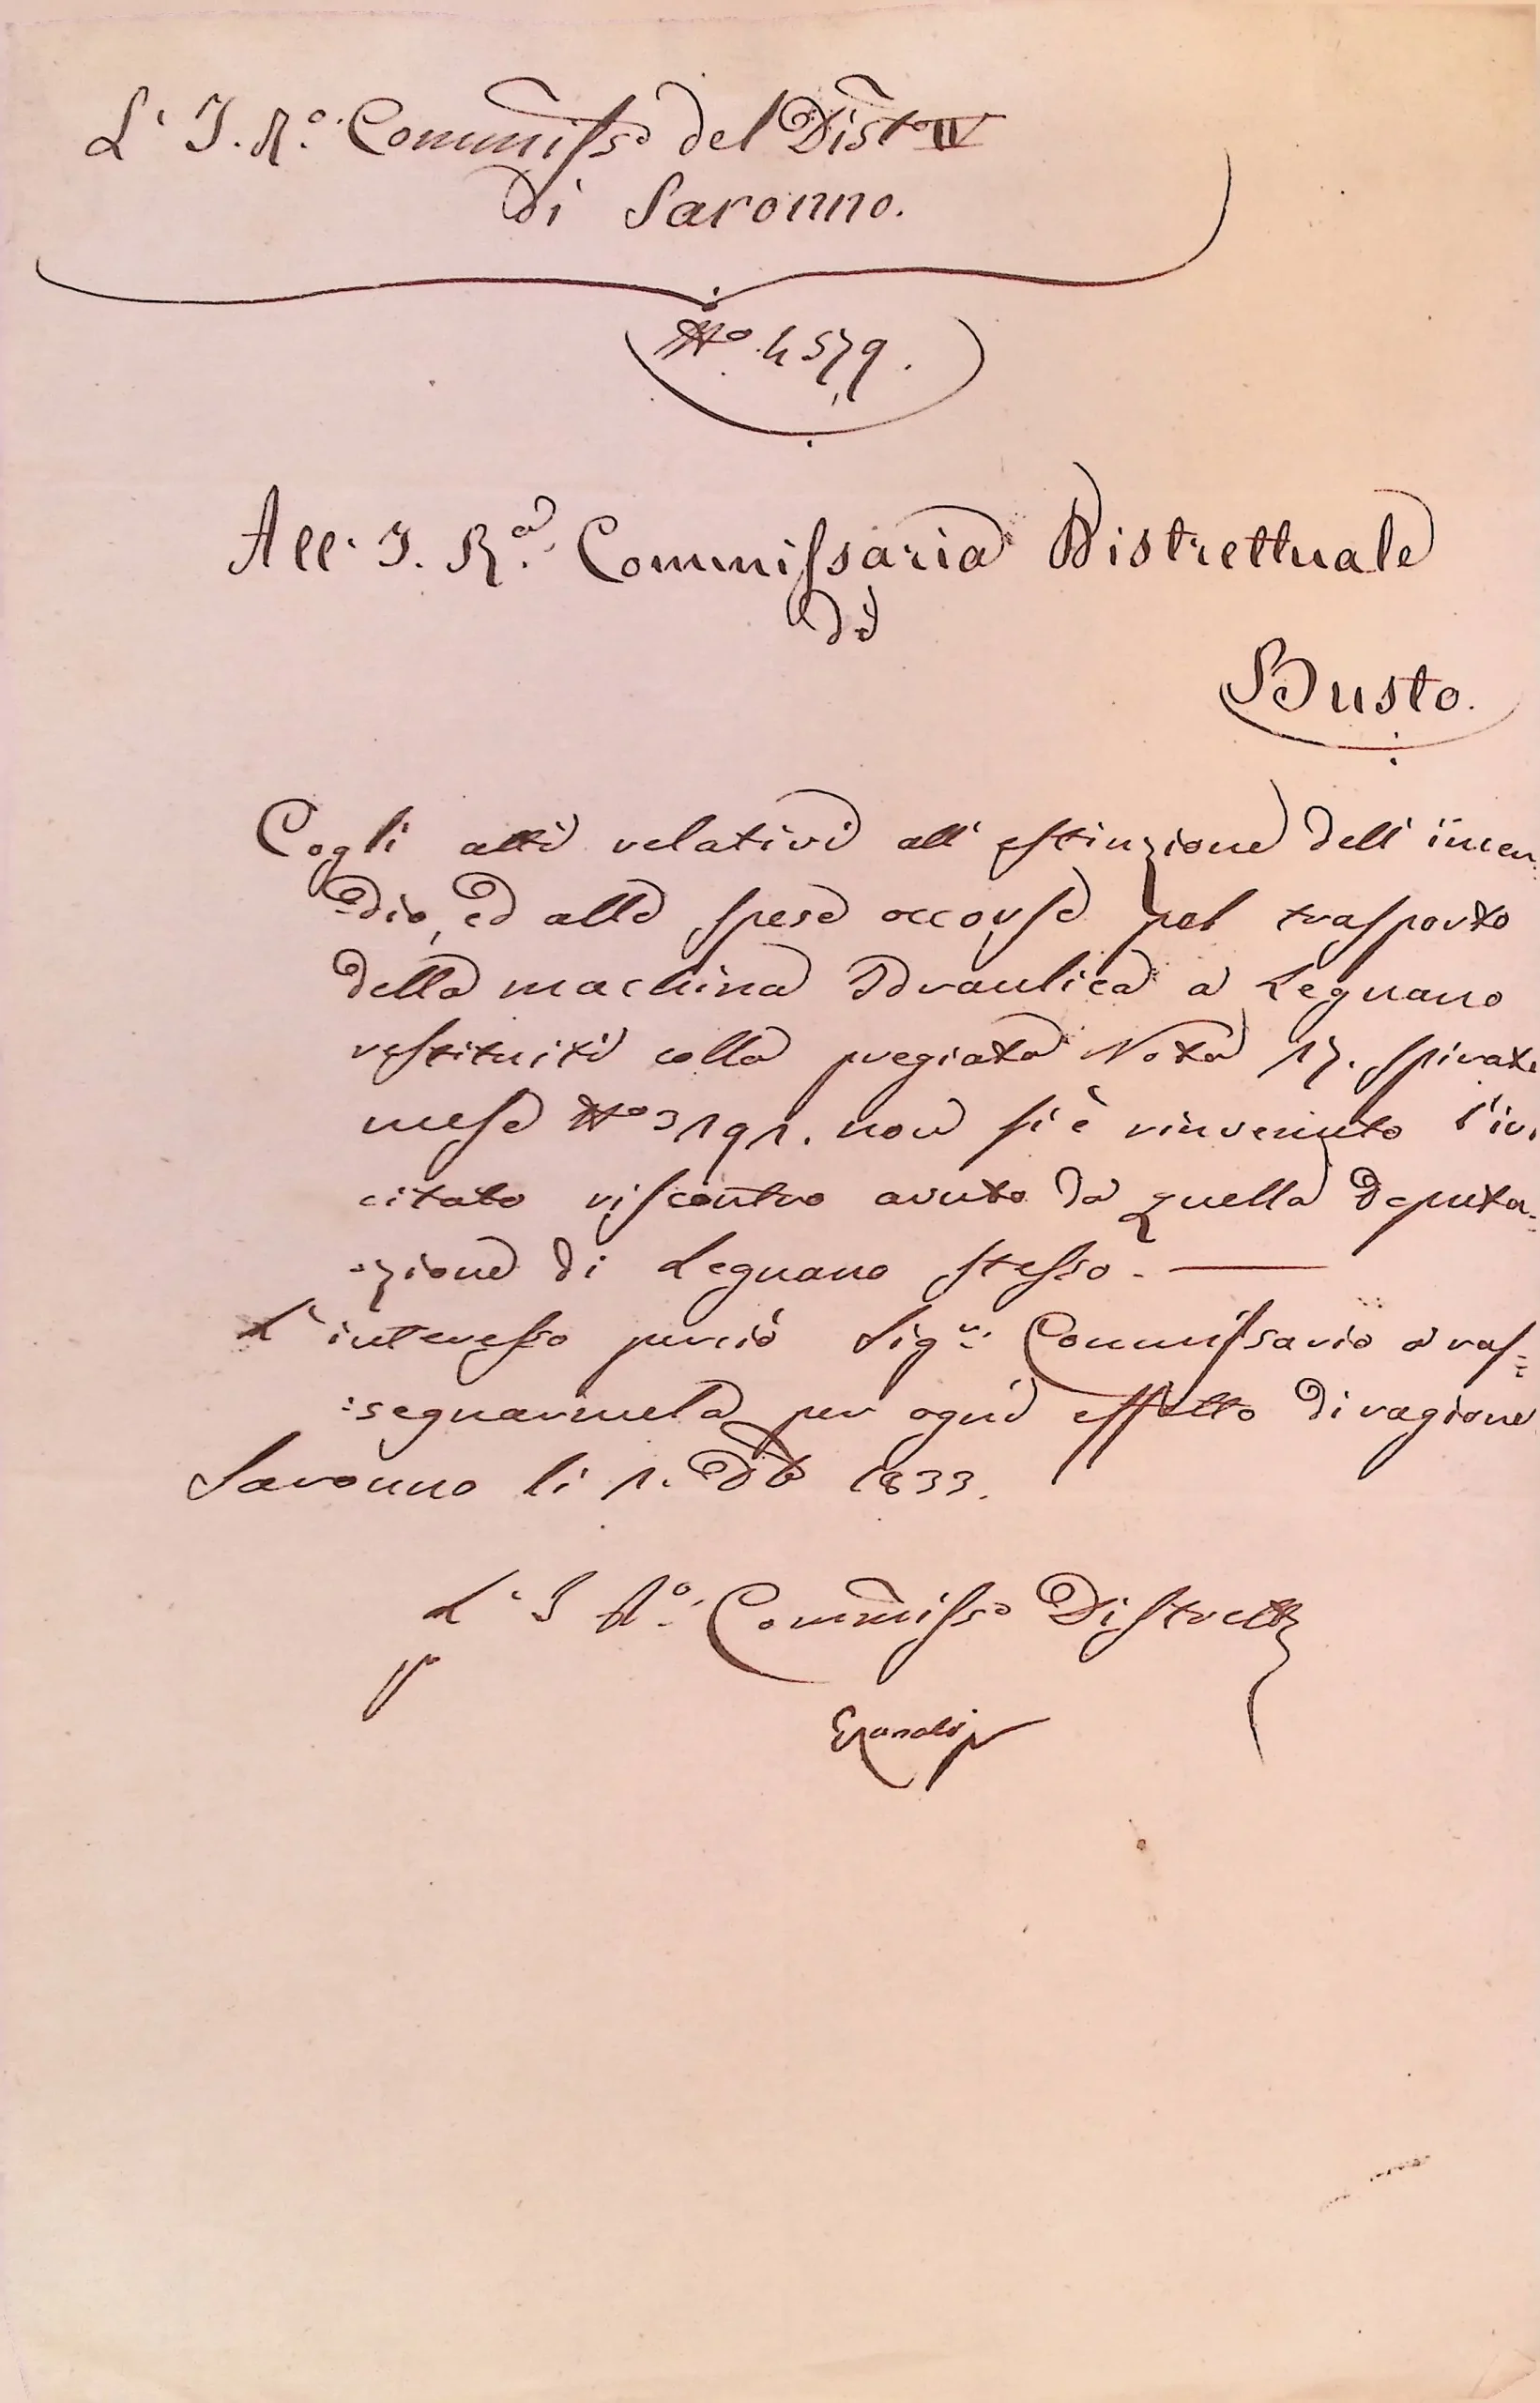 L' I. R.º Commisso del Distto IV
di Saronno.
Nº 4579.
All' I. R.a Commissaria Distrettuale
di
Busto.
Cogli atti relativi all' estinzione dell' incen-
dio, ed alle spese occorse pel trasporto
della machina Idraulica a Legnano
restituiti colla pregiata Nota 17. spirato
mese Nº 3191. non si è rinvenuto l'in
citato riscontro avuto da quella Deputa-
zione di Legnano stesso. —
L' interesso perciò Sigr. Commissario a ras=
:segnarmela per ogni effetto di ragione
Saronno li 1. Xb 1833.
L' I Rº. Commisso Distrett